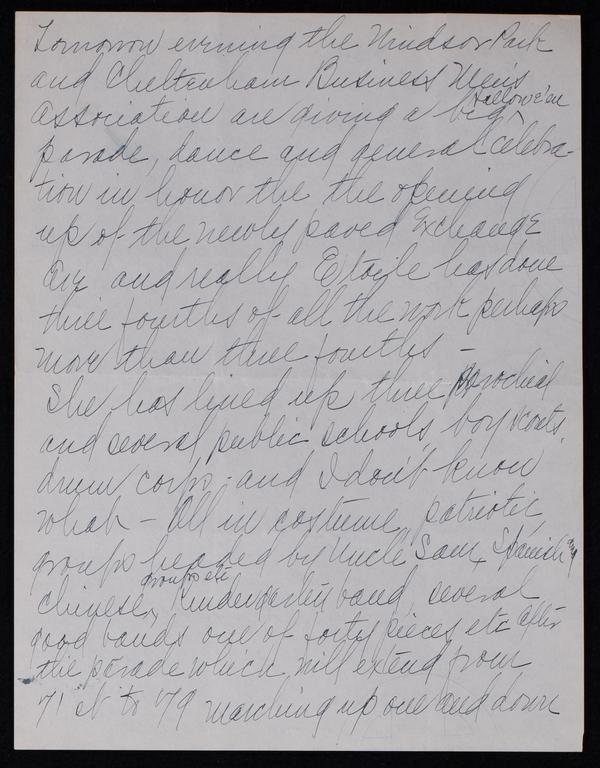 Tomorrow evening the Windsor Park
and Cheltenham Business Men's
Association are giving a big Hallowe'en
parade, dance and general celebra-
tion in honor the the opening
up of the newly paved Exchange
Ave and really Etoile has done
three fourths of all the work perhaps
more than three fourths -
She has lined up three parochial
and several public schools boy scouts,
drum corps - and I don't know
what - All in costume, patriotic
groups headed by Uncle Sam, Spanish and
Chinese groups etc, kindergarten band, several
good bands one of forty pieces etc After
the parade which will extend from
71 st to 79 marching up one and down